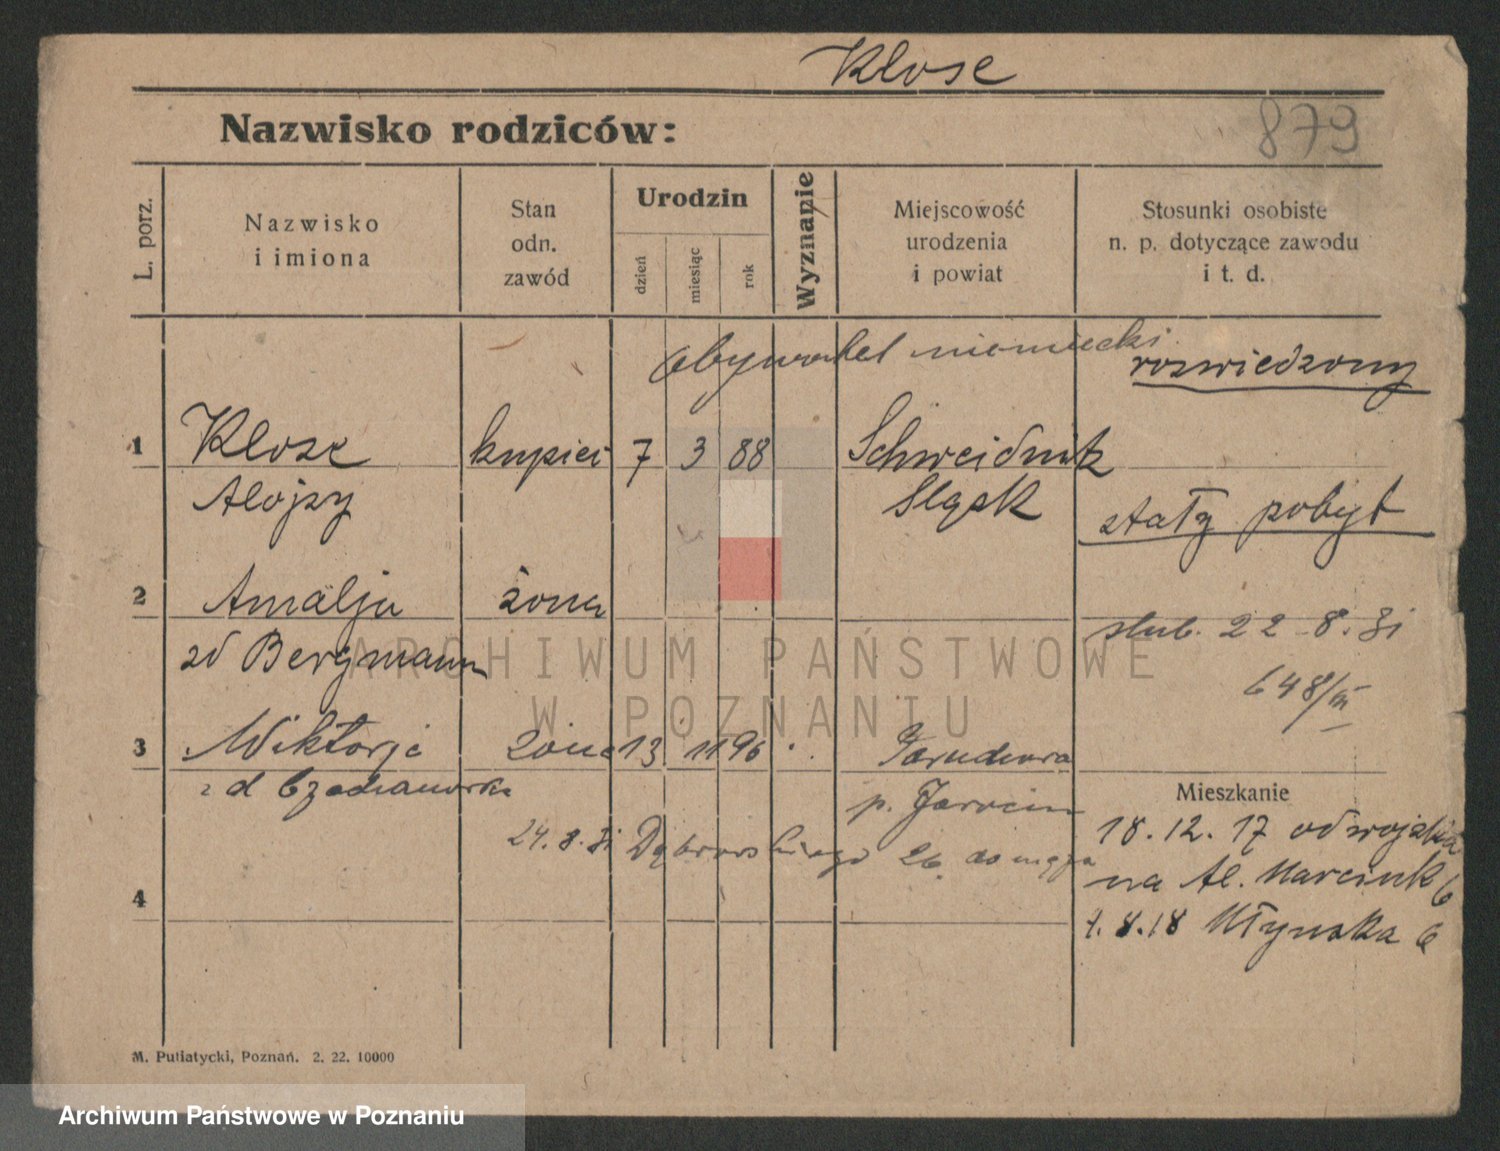 Klose
Nazwisko rodziców:
879
L. porz.
Nazwisko
i imiona
Stan
odn.
zawód
Urodzin
dzień
miesiąc
rok
Wyznanie
Miejscowość
urodzenia
i powiat
Stosunki osobiste
n. p. dotyczące zawodu
i t. d.
obywatel niemiecki
rozwiedzony
1 Klose kupiec 7 3 88 Schweidnitz
Alojzy Śląsk
stały pobyt
2 Amalja żona
ślub. 22.8.31
zd Bergmann
648/III
3 Wiktorja żona 13 11 96
p. Jarocin
Mieszkanie
18.12.17 od wojska
24.8.31 Dąbrowskiego 26. do męża
na Al. Marcink 6
4
1.8.18 Młyńska 6
M. Putiatycki, Poznań. 2. 22. 10000
ARCHIWUM PAŃSTWOWE
W POZNANIU
Archiwum Państwowe w Poznaniu